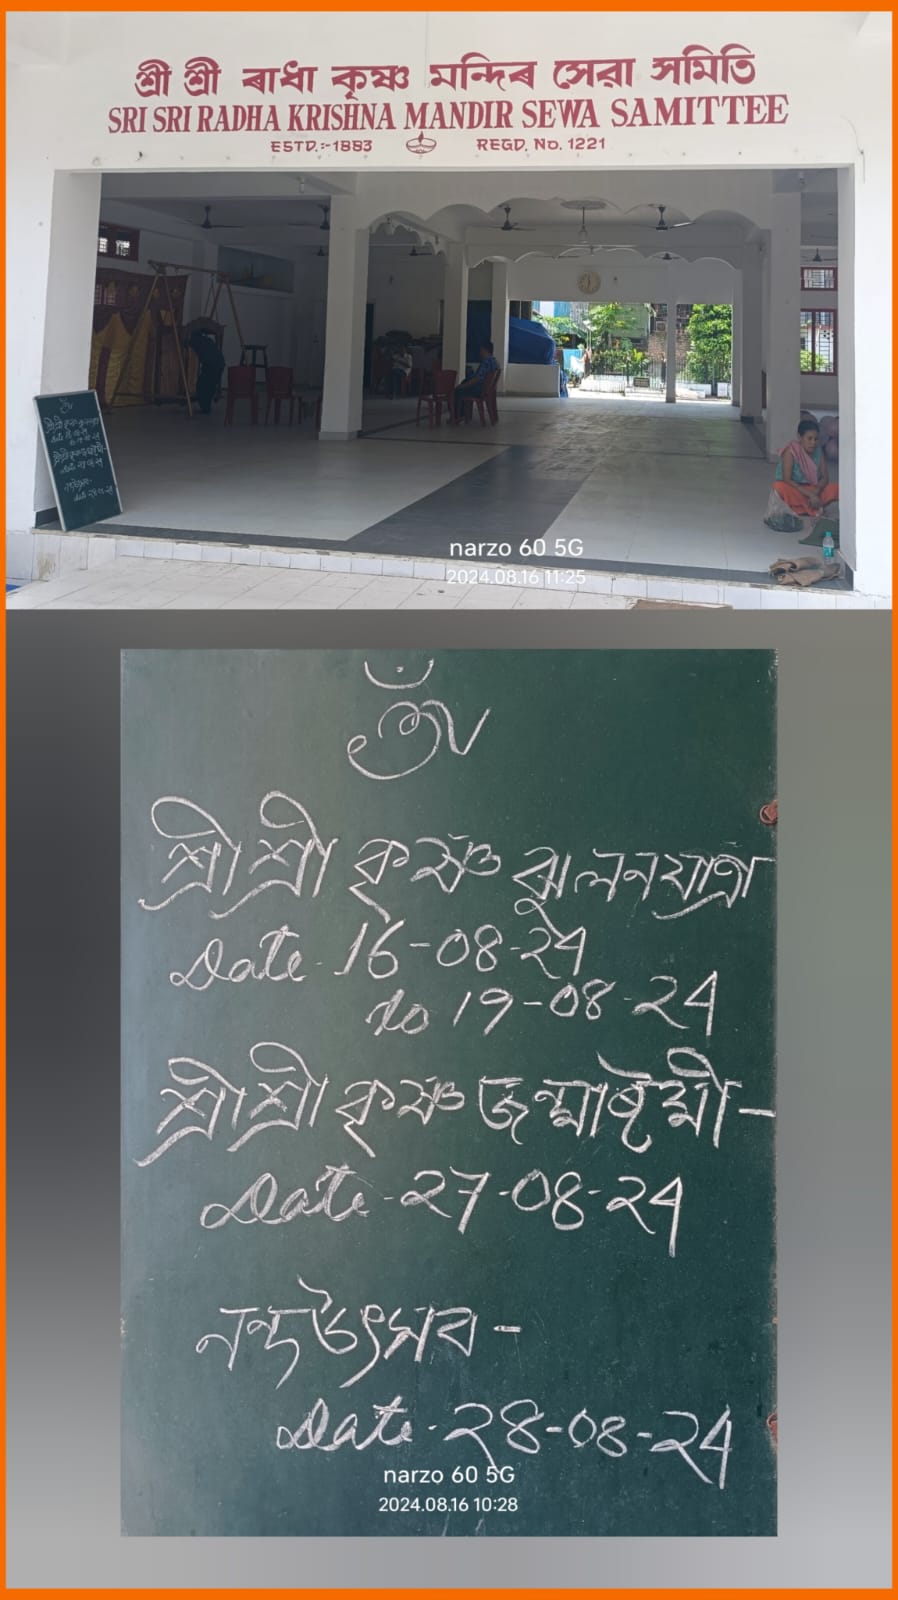 শ্ৰী শ্ৰী ৰাধা কৃষ্ণ মন্দিৰ সেৱা সমিতি
SRI SRI RADHA KRISHNA MANDIR SEWA SAMITTEE
ESTD.:-1883 REGD. NO. 1221
narzo 60 5G
2024.08.16 11:25
ওঁ
শ্রীশ্রী কৃষ্ণ ঝুলনযাত্রা
Date. 16-08-24
to 19-08-24
শ্রীশ্রী কৃষ্ণ জন্মাষ্টমী-
Date-27-08-24
নন্দউৎসব-
Date-28-08-24
narzo 60 5G
2024.08.16 10:28